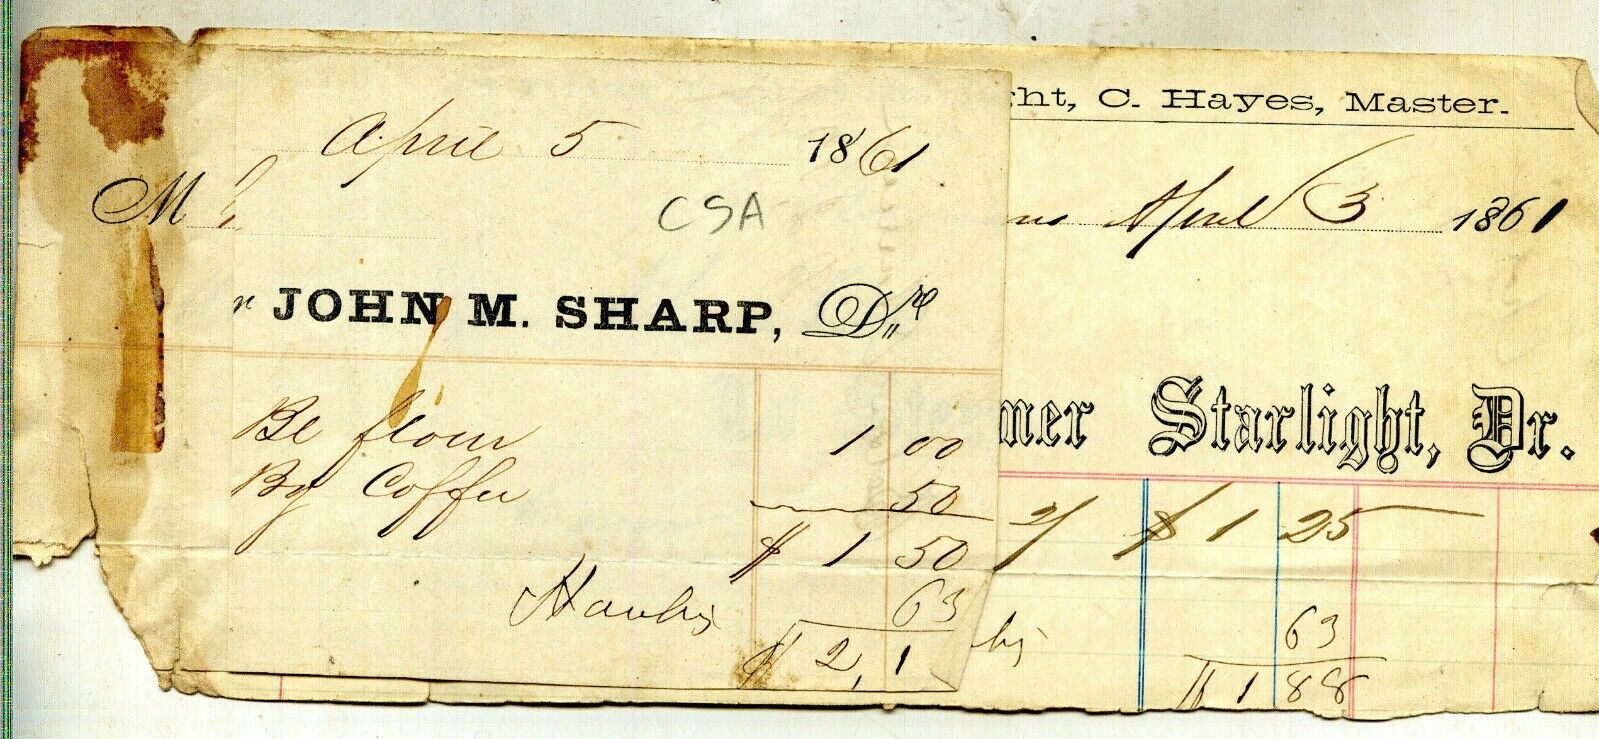 ht, C. Hayes, Master.
April 5 1861
M
April 3 1861
CSA
r JOHN M. SHARP, Dr
ner Starlight, Dr.
Bl flour 1 00
Bg Coffee 50
$ 1 50
2/ $ 1 25
63
63
$ 2,1
$ 1 88